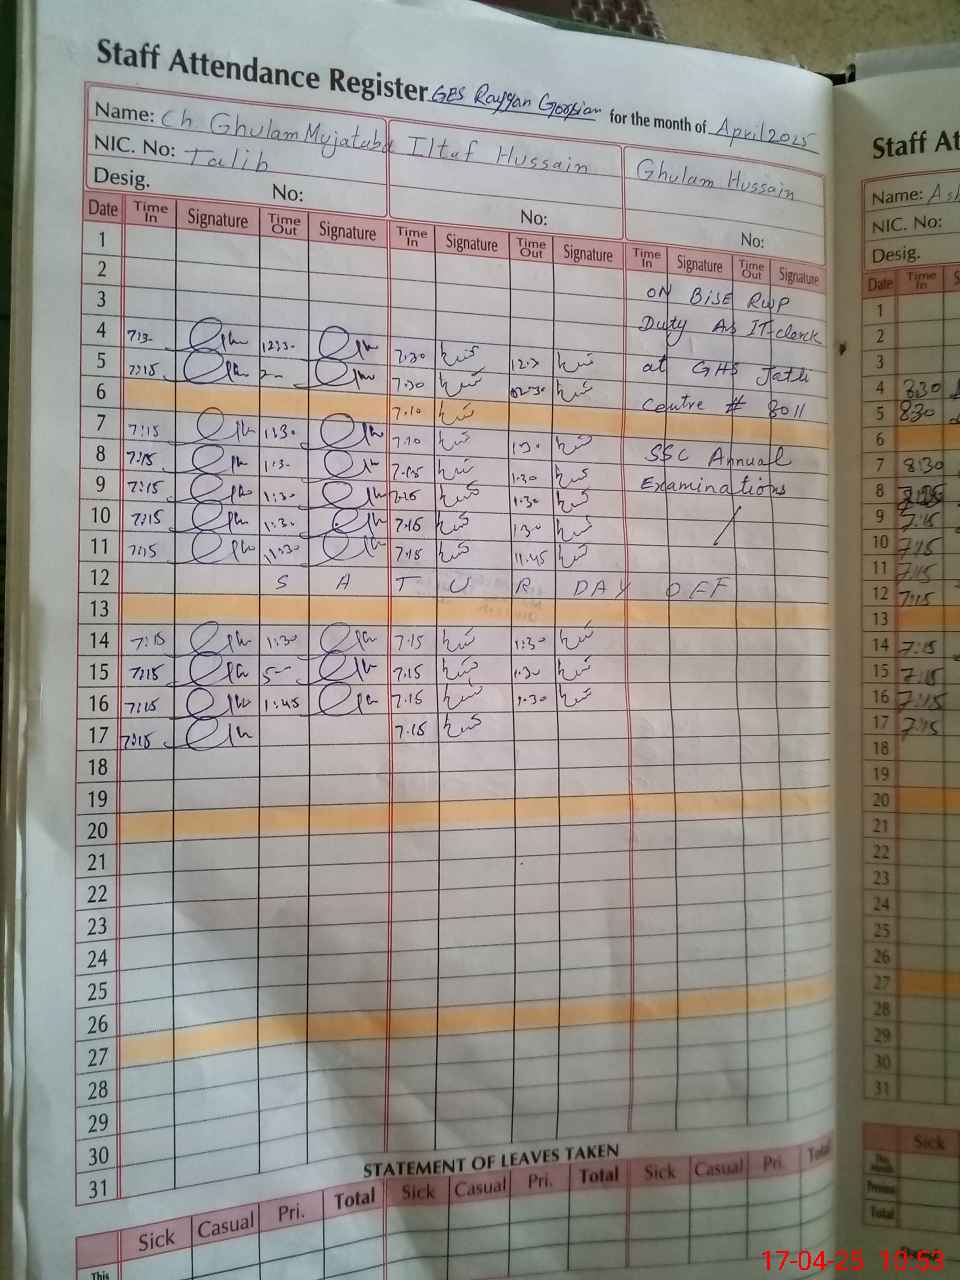 Staff Attendance Register GES Rayyan Goorsian for the month of April 2025
Name: Ch. Ghulam Mujataba Iltaf Hussain Ghulam Hussain
NIC. No: Talib
Desig. No: No: No:
Date Time In Signature Time Out Signature Time In Signature Time Out Signature Time In Signature Time Out Signature
1
2 ON BISE RWP
3 Duty As IT clerck
4 7:3- 12:30- 7:30 at GHS Jatli
5 7:15 2- 7:30 02:30 Centre # 8011
6 7.10
7 7:15 1:30 7.10 1:30 SSC Annual
8 7:15 1:3- 7.15 1.30 Examinations
9 7:15 1:30 7.15 1.30
10 7:15 1:30 7.15 1:30
11 7:15 11:30 7.15 11.45
12 S A T U R DAY OFF
13
14 7:15 1:30 7.15 1:30
15 7:15 5- 7.15 1.30
16 7:15 1:45 7.15 1.30
17 7:15 7.15
18
19
20
21
22
23
24
25
26
27
28
29
30
31
STATEMENT OF LEAVES TAKEN
Sick Casual Pri. Total Sick Casual Pri. Total Sick Casual Pri. Total
This
Staff At
Name: Ash
NIC. No:
Desig.
Date Time In S
1
2
3
4 8:30
5 8:30
6
7 8:30
8
9 7:15
10 7:15
11 7:15
12 7:15
13
14 7:15
15 7:15
16 7:15
17 7:15
18
19
20
21
22
23
24
25
26
27
28
29
30
31
Sick
This Month
Previous
Total
17-04-25 10:53